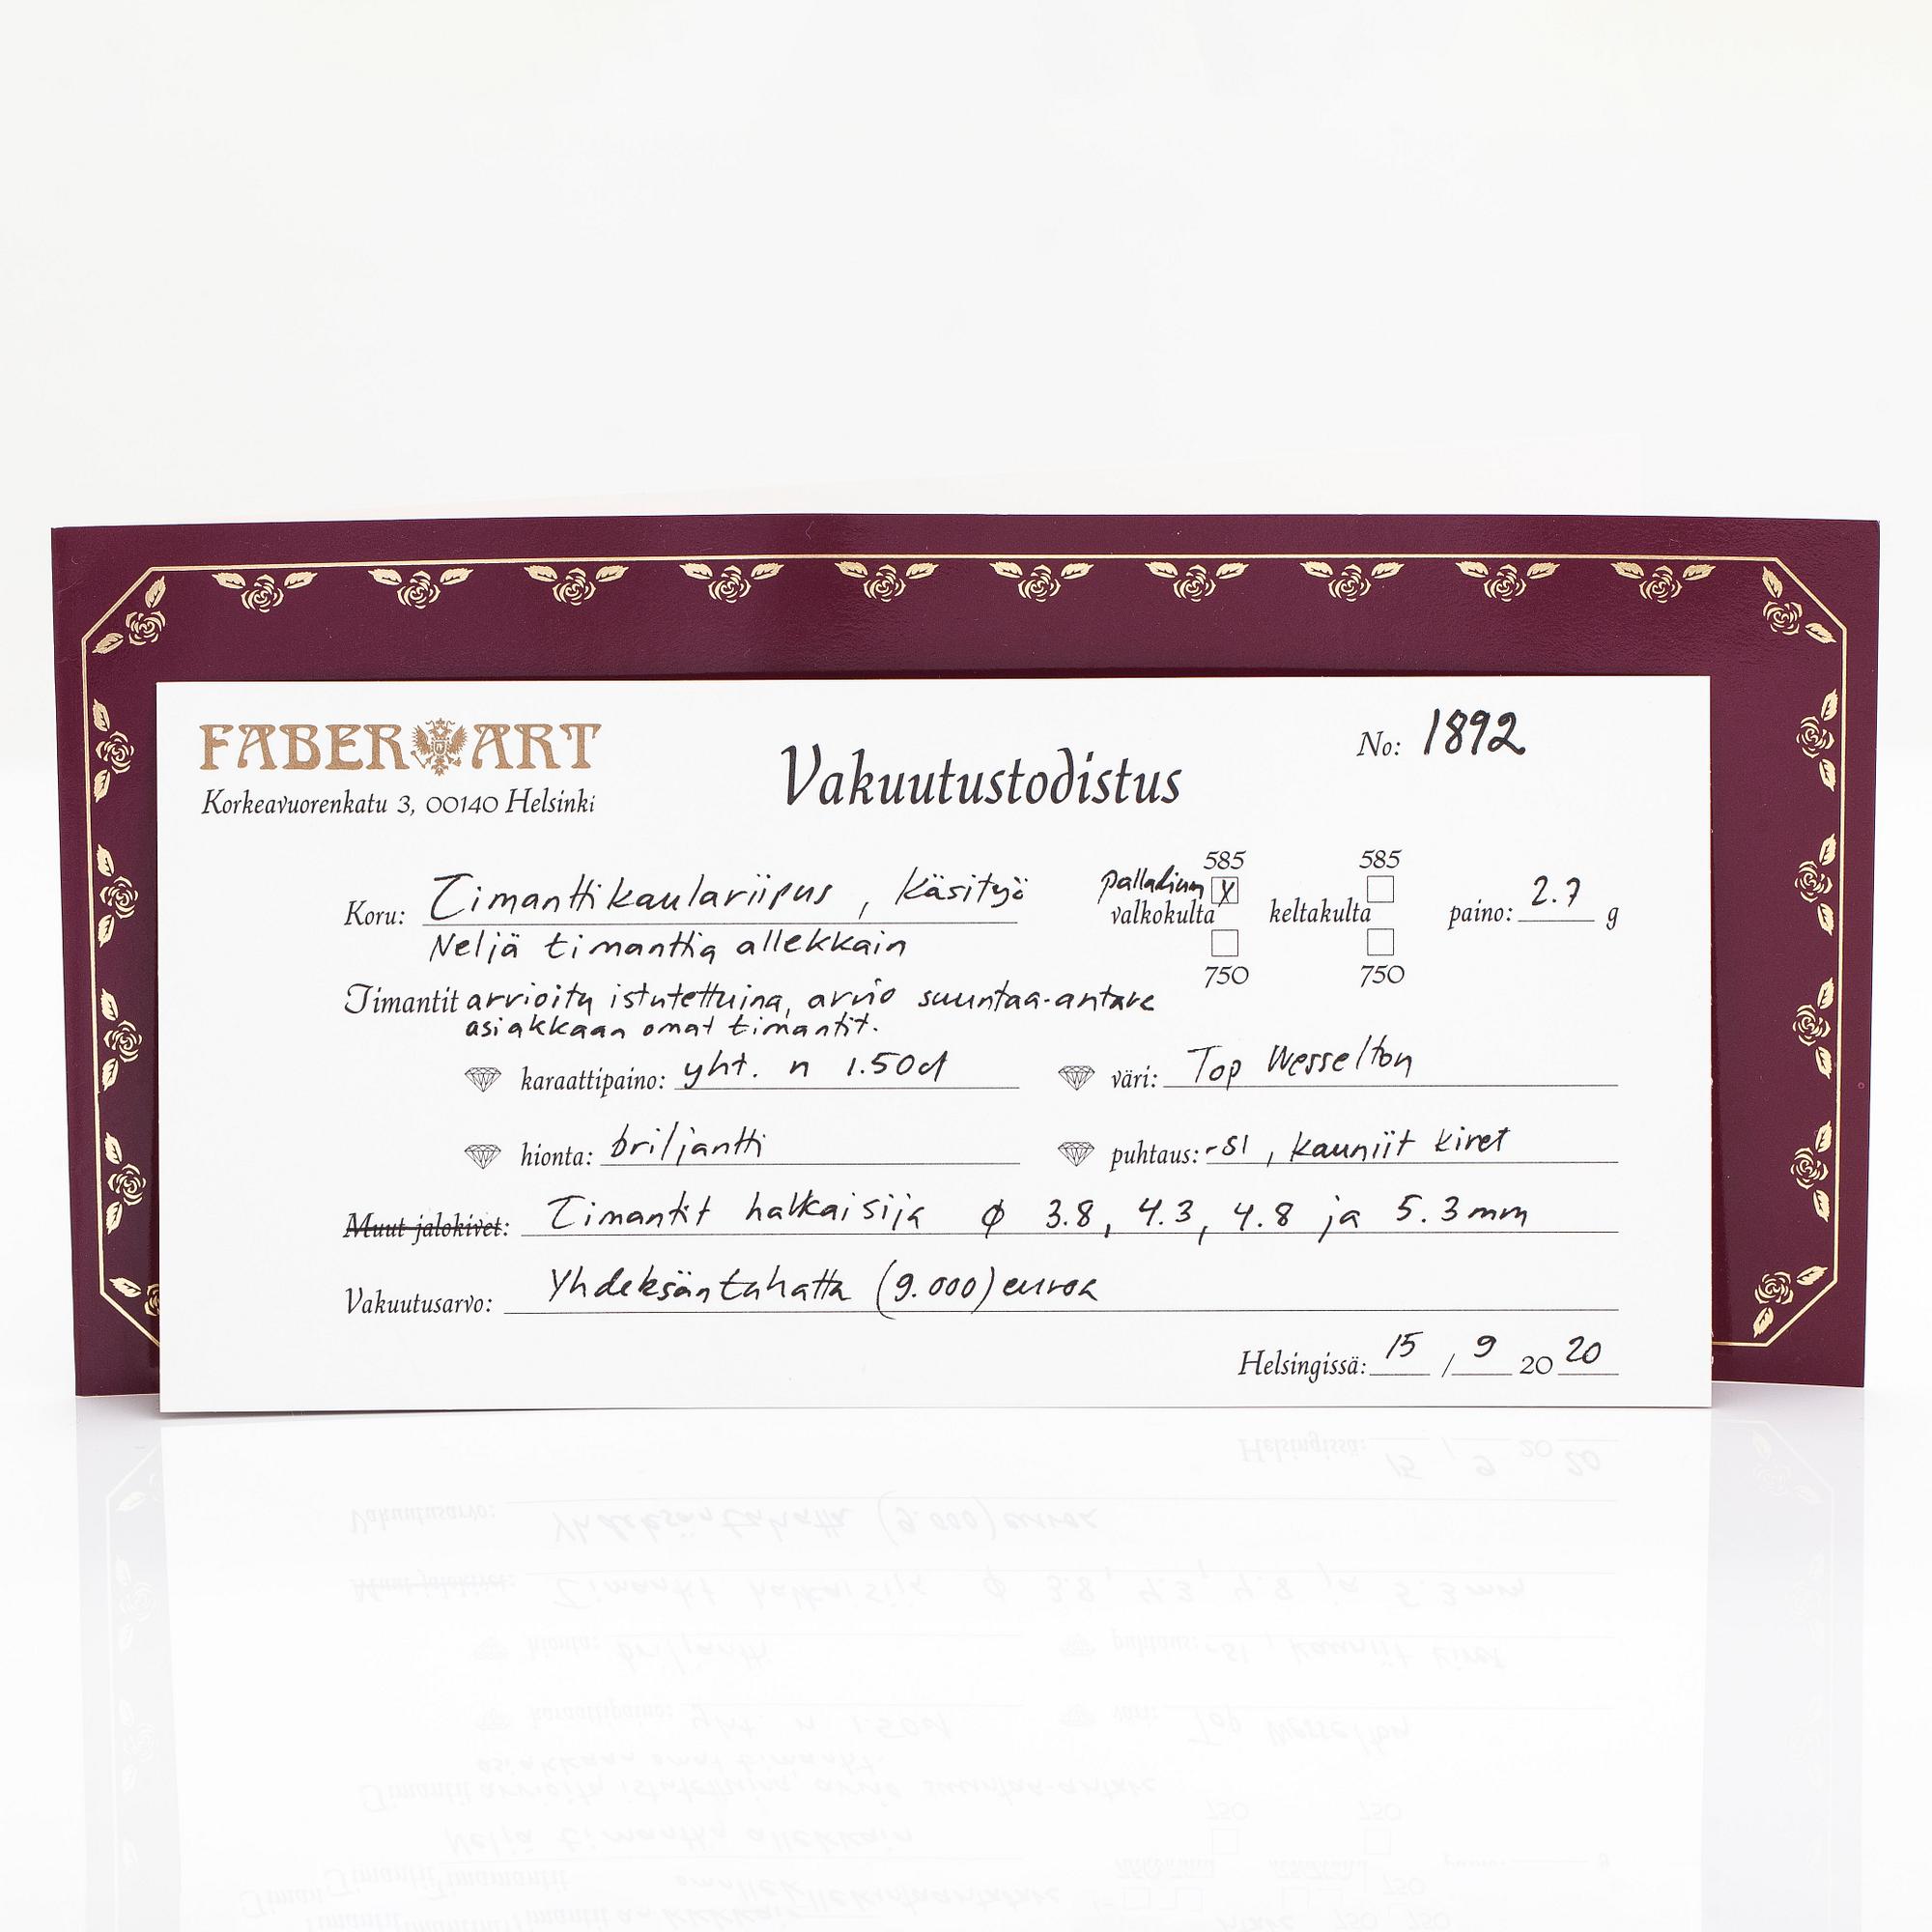 FABER ART
Korkeavuorenkatu 3, 00140 Helsinki
Vakuutustodistus
No: 1892
Koru: Timanttikaulariipus, Käsityö
Neljä timanttia allekkain
585
palladium X
valkokulta
750
585
keltakulta
750
paino: 2.7 g
Timantit arvioitu istutettuina, arvio suuntaa-antava
asiakkaan omat timantit.
karaattipaino: yht. n 1.50ct
väri: Top Wesselton
hionta: briljantti
puhtaus: -SI, kauniit kivet
Muut jalokivet: Timantit halkaisija ϕ 3.8, 4.3, 4.8 ja 5.3mm
Vakuutusarvo: Yhdeksäntuhatta (9.000) euroa
Helsingissä: 15 / 9 2020